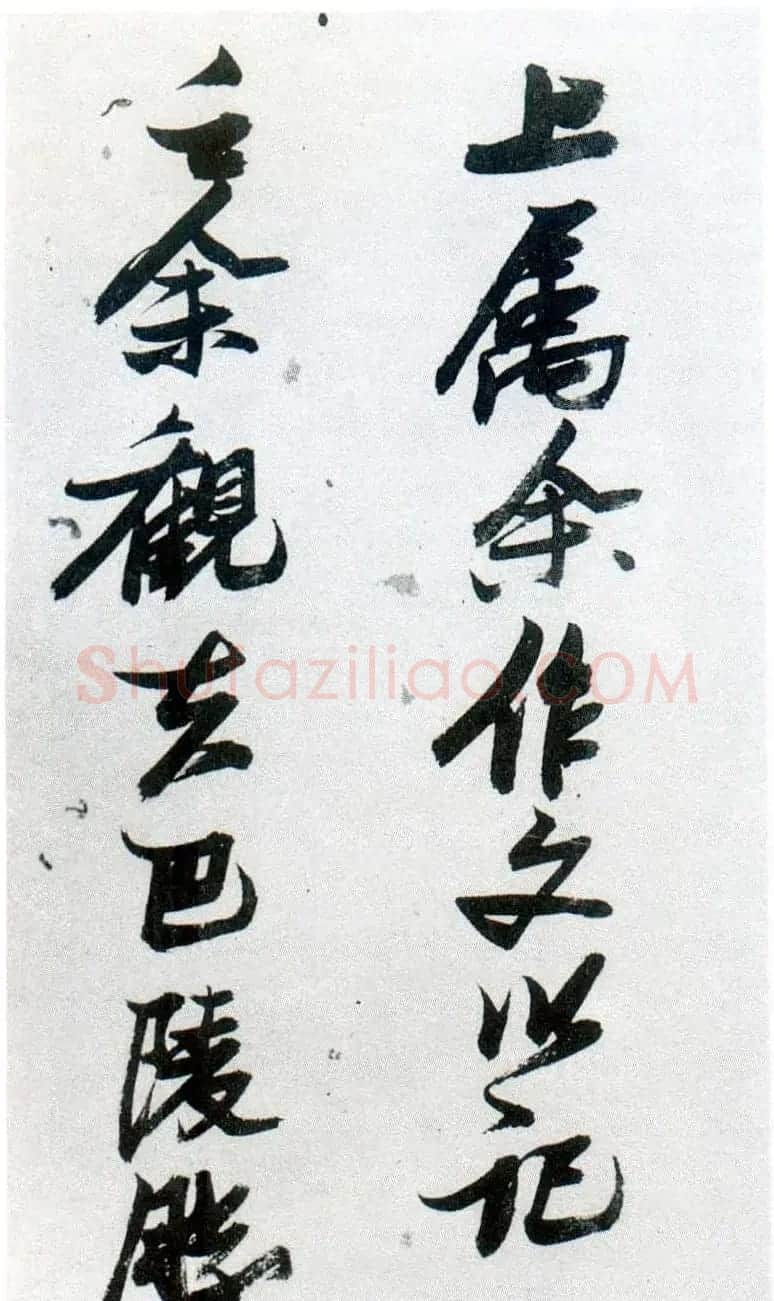 上属余作文以記
之余觀夫巴陵勝
Shufaziliao.COM